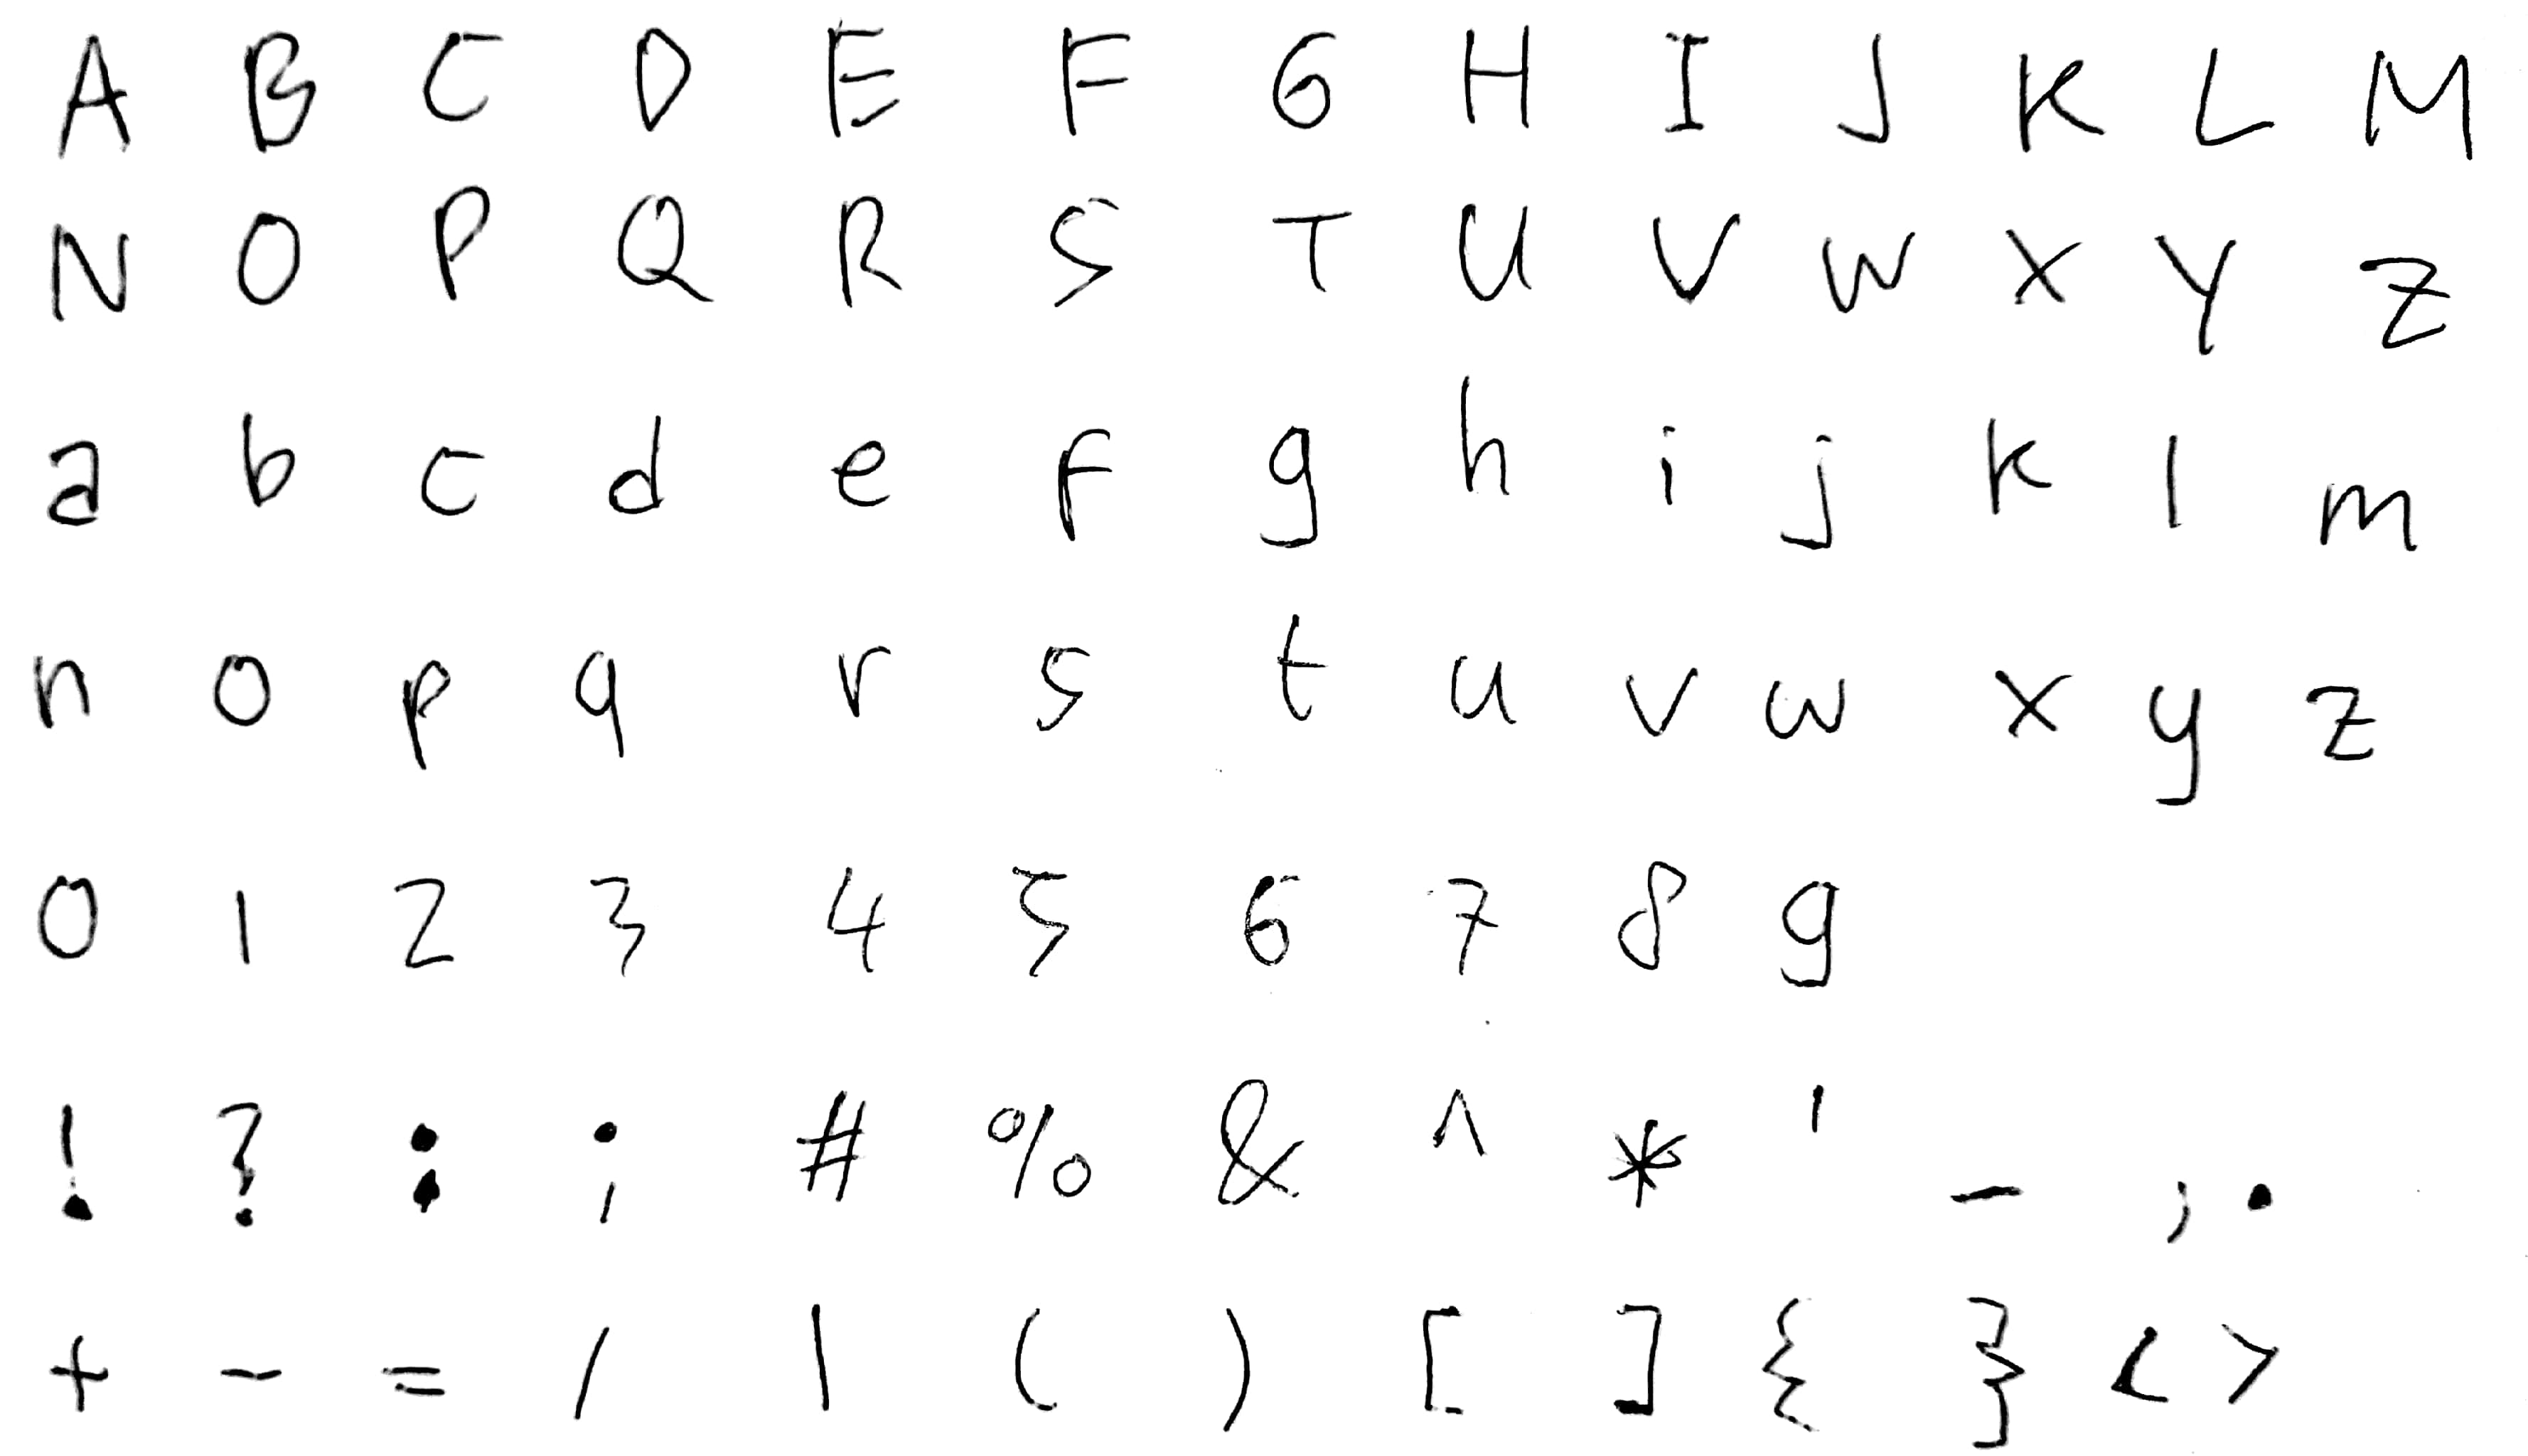 A B C D E F G H I J K L M
N O P Q R S T U V W X Y Z
a b c d e f g h i j k l m
n o p q r s t u v w x y z
0 1 2 3 4 5 6 7 8 9
! ? : ; # % & ^ * ' _ , .
+ - = / | ( ) [ ] { } < >